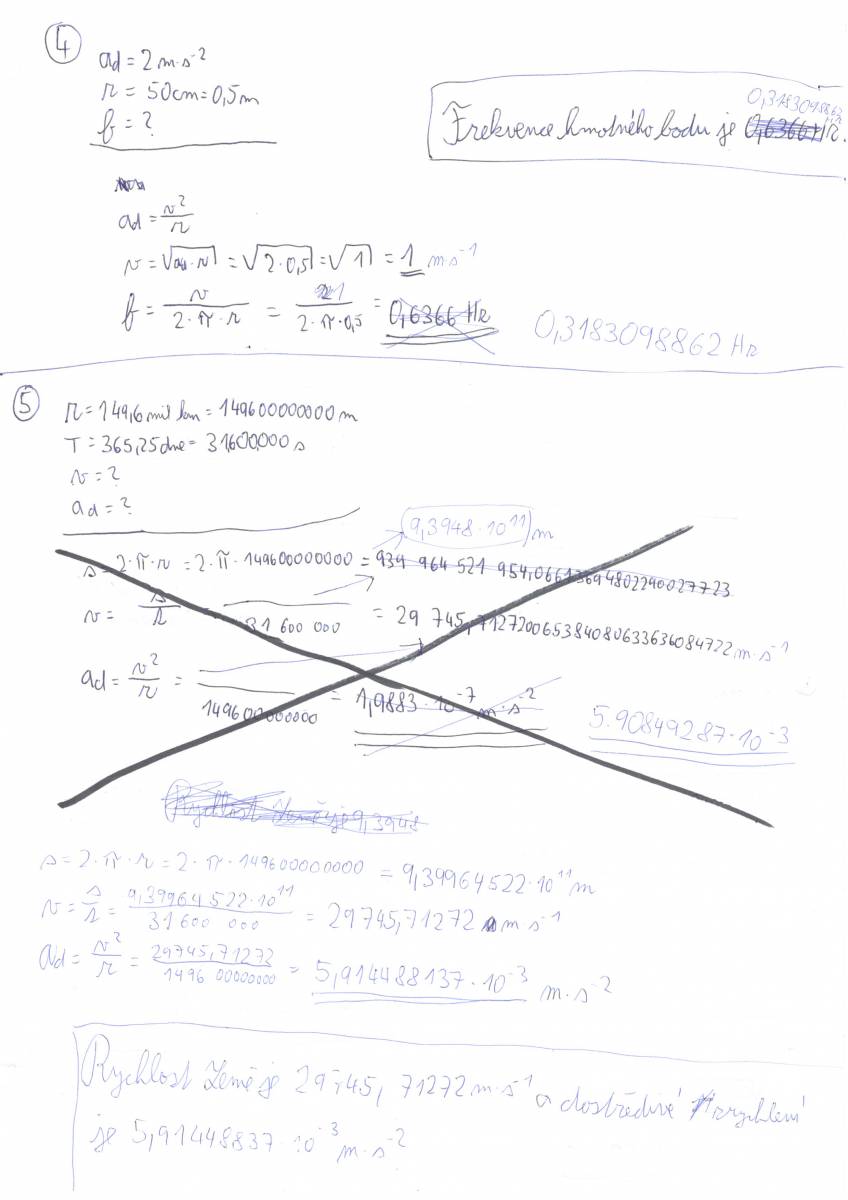 4
ad = 2 m·s⁻²
r = 50cm = 0,5m
f = ?
0,3183098862
Frekvence hmotného bodu je 0,6366 Hz.
ad = v²/r
v = √ad·r = √2·0,5 = √1 = 1 m·s⁻¹
f = v/2·π·r = 1/2·π·0,5 = 0,6366 Hz 0,3183098862 Hz
5
r = 149,6 mil km = 149600000000 m
T = 365,25 dne = 31600000 s
v = ?
ad = ?
9,3948·10¹¹ m
s = 2·π·r = 2·π·149600000000 = 939 964 521 954,0661369480224002 7723
v = s/t = /31 600 000 = 29 745,712720065384080633636084722 m·s⁻¹
ad = v²/r = /149600000000 = 1,9883·10⁻⁷ m·s⁻² 5.90849287·10⁻³
Rychlost Země je 9,3948
s = 2·π·r = 2·π·149600000000 = 9,39964522·10¹¹ m
v = s/t = 9,39964522·10¹¹/31600 000 = 29745,71272 m s⁻¹
ad = v²/r = 29745,71272/149600000000 = 5,914488137·10⁻³ m·s⁻²
Rychlost Země je 29745,71272 m·s⁻¹ a dostředivé zrychlení
je 5,91448837·10⁻³ m·s⁻²